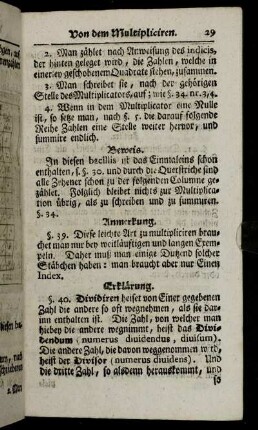 Von dem Multipliciren. 29
2. Man zählet nach Anweisung des indicis,
der hinten geleget wird, die Zahlen, welche in
einerley geschobenem Quadrate stehen, zusammen.
3. Man schreibet sie, nach der gehörigen
Stelle des Multiplicators, auf; wie §. 34. nr. 3, 4.
4. Wenn in dem Multiplicator eine Nulle
ist, so setze man, nach §. 5. die darauf folgende
Reihe Zahlen eine Stelle weiter hervor, und
summire endlich.
Beweis.
In diesen bacillis ist das Einmaleins schon
enthalten, §. §. 30. und durch die Querstriche sind
alle Zehener schon zu der folgenden Columne ge-
zählet. Folglich bleibet nichts zur Multiplica-
tion übrig, als zu schreiben und zu summiren.
§. 34.
Anmerkung.
§. 39. Diese leichte Art zu multipliciren brau-
chet man nur bey weitläuftigen und langen Exem-
peln. Daher muß man einige Dutzend solcher
Stäbchen haben: man braucht aber nur Einen
Index.
Erklärung.
§. 40. Dividiren heiset von Einer gegebenen
Zahl die andere so oft wegnehmen, als sie dar-
inn enthalten ist. Die Zahl, von welcher man
hiebey die andere wegnimmt, heißt das Divi-
dendum (numerus diuidendus, diuisum).
Die andere Zahl, die davon weggenommen wird,
heist der Divisor (numerus diuidens). Und
die dritte Zahl, so alsdenn herauskommt, und
so